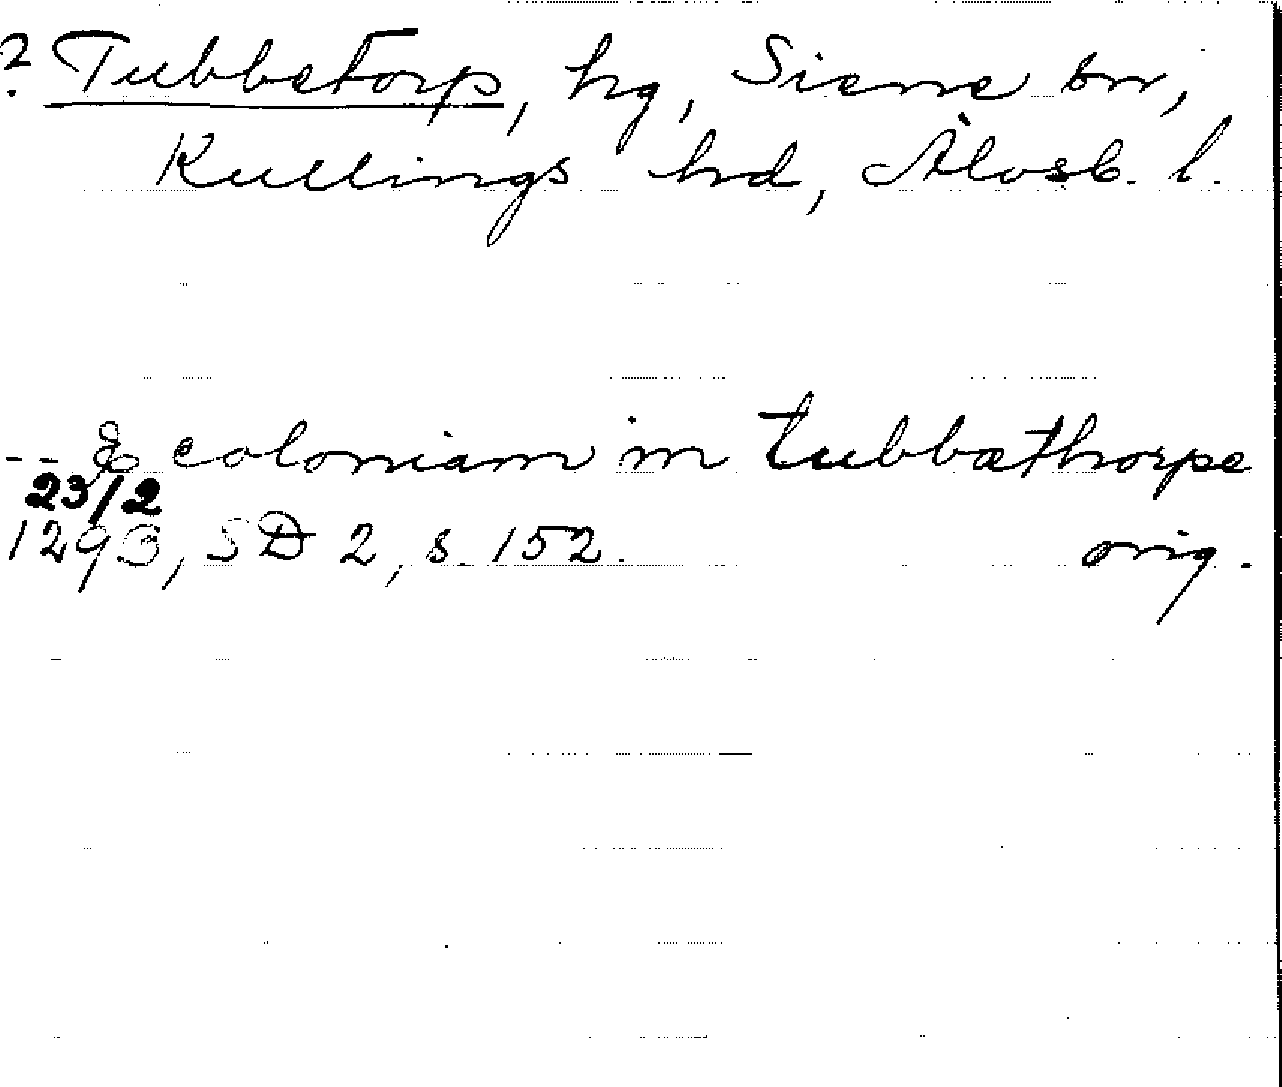 ? Tubbetorp, hg, Siene sn,
Kullings hd, Älvsb. l.
-- & coloniam in tubbæthorpe
23/2
1293, SD 2, s. 152. orig.